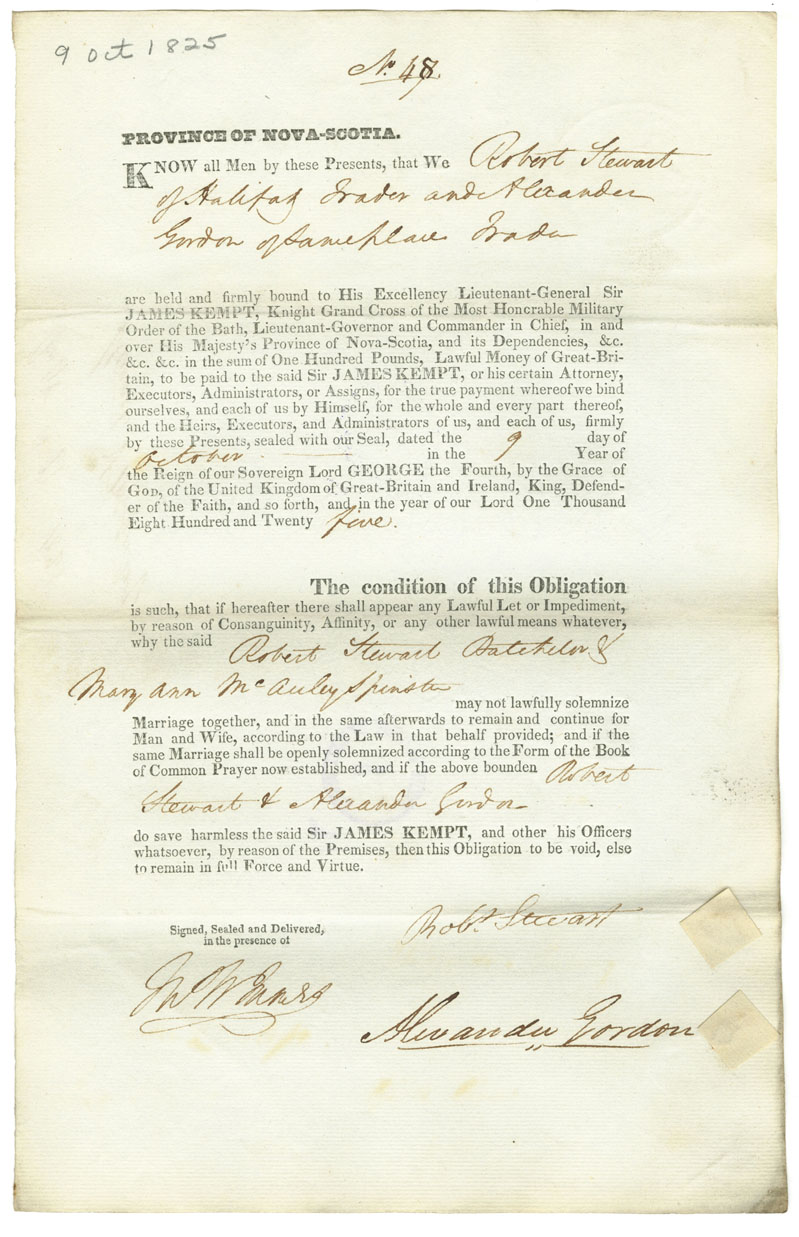 9 Oct 1825
No. 48.
PROVINCE OF NOVA-SCOTIA.
KNOW all Men by these Presents, that We Robert Stewart
of Halifax Trader and Alexander
Gordon of same place Trader
are held and firmly bound to His Excellency Lieutenant-General Sir
JAMES KEMPT, Knight Grand Cross of the Most Honorable Military
Order of the Bath, Lieutenant-Governor and Commander in Chief, in and
over His Majesty's Province of Nova-Scotia, and its Dependencies, &c.
&c. &c. in the sum of One Hundred Pounds, Lawful Money of Great-Bri-
tain, to be paid to the said Sir JAMES KEMPT, or his certain Attorney,
Executors, Administrators, or Assigns, for the true payment whereof we bind
ourselves, and each of us by Himself, for the whole and every part thereof,
and the Heirs, Executors, and Administrators of us, and each of us, firmly
by these Presents, sealed with our Seal, dated the 9 day of
October in the Year of
the Reign of our Sovereign Lord GEORGE the Fourth, by the Grace of
GOD, of the United Kingdom of Great-Britain and Ireland, King, Defend-
er of the Faith, and so forth, and in the year of our Lord One Thousand
Eight Hundred and Twenty five.
The condition of this Obligation
is such, that if hereafter there shall appear any Lawful Let or Impediment,
by reason of Consanguinity, Affinity, or any other lawful means whatever,
why the said Robert Stewart Batchelor &
Mary Ann McAuley Spinster
may not lawfully solemnize
Marriage together, and in the same afterwards to remain and continue for
Man and Wife, according to the Law in that behalf provided; and if the
same Marriage shall be openly solemnized according to the Form of the Book
of Common Prayer now established, and if the above bounden Robert
Stewart & Alexander Gordon
do save harmless the said Sir JAMES KEMPT, and other his Officers
whatsoever, by reason of the Premises, then this Obligation to be void, else
to remain in full Force and Virtue.
Signed, Sealed and Delivered,
in the presence of
Robt Stewart
Alexander Gordon